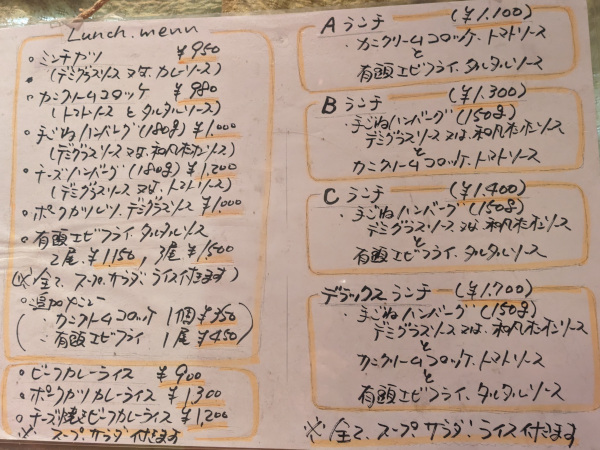 Lunch. menu
・ミンチカツ ¥950
(デミグラスソース又は、カレーソース)
・カニクリームコロッケ ¥980
(トマトソース と タルタルソース)
・手ごねハンバーグ(180g) ¥1,000
(デミグラスソース又は、和風ポン酢ソース)
・チーズハンバーグ(180g) ¥1,200
(デミグラスソース 又は、トマトソース)
・ポークカツレツ、デミグラスソース ¥1,000
・有頭エビフライ、タルタルソース
2尾 ¥1,150、3尾 ¥1,500
(※全て、スープ、サラダ、ライス付きます)
・追加メニュー
(・カニクリームコロッケ 1個 ¥350
・有頭エビフライ 1尾 ¥450)
・ビーフカレーライス ¥900
・ポークカツカレーライス ¥1,300
・チーズ焼きビーフカレーライス ¥1,200
※ スープ、サラダ 付きます
Aランチ (¥1,100)
・カニクリームコロッケ、トマトソース
と
有頭エビフライ、タルタルソース
Bランチ (¥1,300)
・手ごねハンバーグ(150g)
デミグラスソース又は、和風ポン酢ソース
と
カニクリームコロッケ、トマトソース
Cランチ (¥1,400)
・手ごねハンバーグ(150g)
デミグラスソース 又は、和風ポン酢ソース
と
有頭エビフライ、タルタルソース
デラックスランチ (¥1,700)
・手ごねハンバーグ(150g)
デミグラスソース又は、和風ポン酢ソース
と
カニクリームコロッケ、トマトソース
と
有頭エビフライ、タルタルソース
※全て、スープ、サラダ、ライス付きます